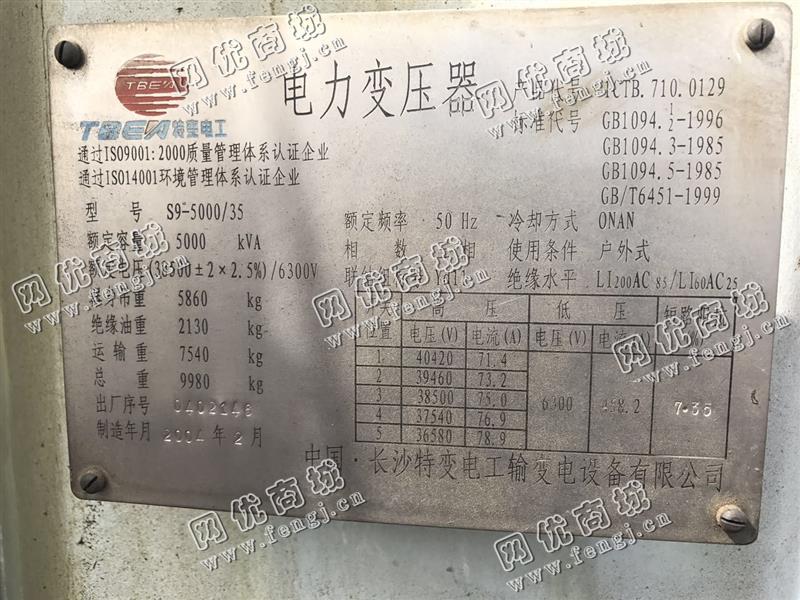 TBEA
TBEA 特变电工
电力变压器
1CTB.710.0129
标准代号 GB1094.1/2-1996
GB1094.3-1985
GB1094.5-1985
GB/T6451-1999
通过ISO9001:2000质量管理体系认证企业
通过ISO14001环境管理体系认证企业
型号 S9-5000/35
额定容量 5000 kVA
额定电压(38500±2×2.5%)/6300V
器身吊重 5860 kg
绝缘油重 2130 kg
运输重 7540 kg
总重 9980 kg
出厂序号 0402146
制造年月 2004年2月
额定频率 50 Hz 冷却方式 ONAN
相数 相 使用条件 户外式
绝缘水平 LI200AC85/LI60AC25
开关位置 高压 低压
电压(V) 电流(A) 电压(V)
1 40420 71.4
2 39460 73.2
3 38500 75.0 6300 458.2 7.35
4 37540 76.9
5 36580 78.9
中国·长沙特变电工输变电设备有限公司
网优商城
www.fengj.cn
网优商城
www.fengj.cn
网优商城
www.fengj.cn
网优商城
www.fengj.cn
网优商城
www.fengj.cn
网优商城
www.fengj.cn